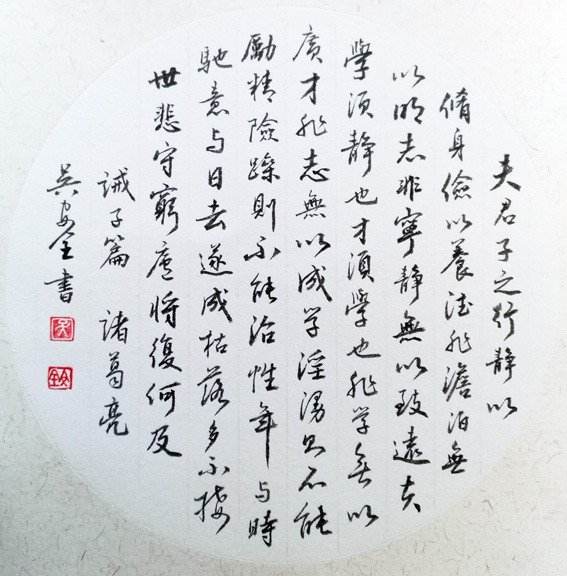 夫君子之行静以
脩身儉以養德非澹泊無
以明志非寧静無以致遠夫
學須静也才須學也非学無以
廣才非志無以成学淫漫则不能
勵精險躁則不能治性年与時
馳意与日去遂成枯落多不接
世悲守窮廬将復何及
誡子篇 諸葛亮
吴安全書